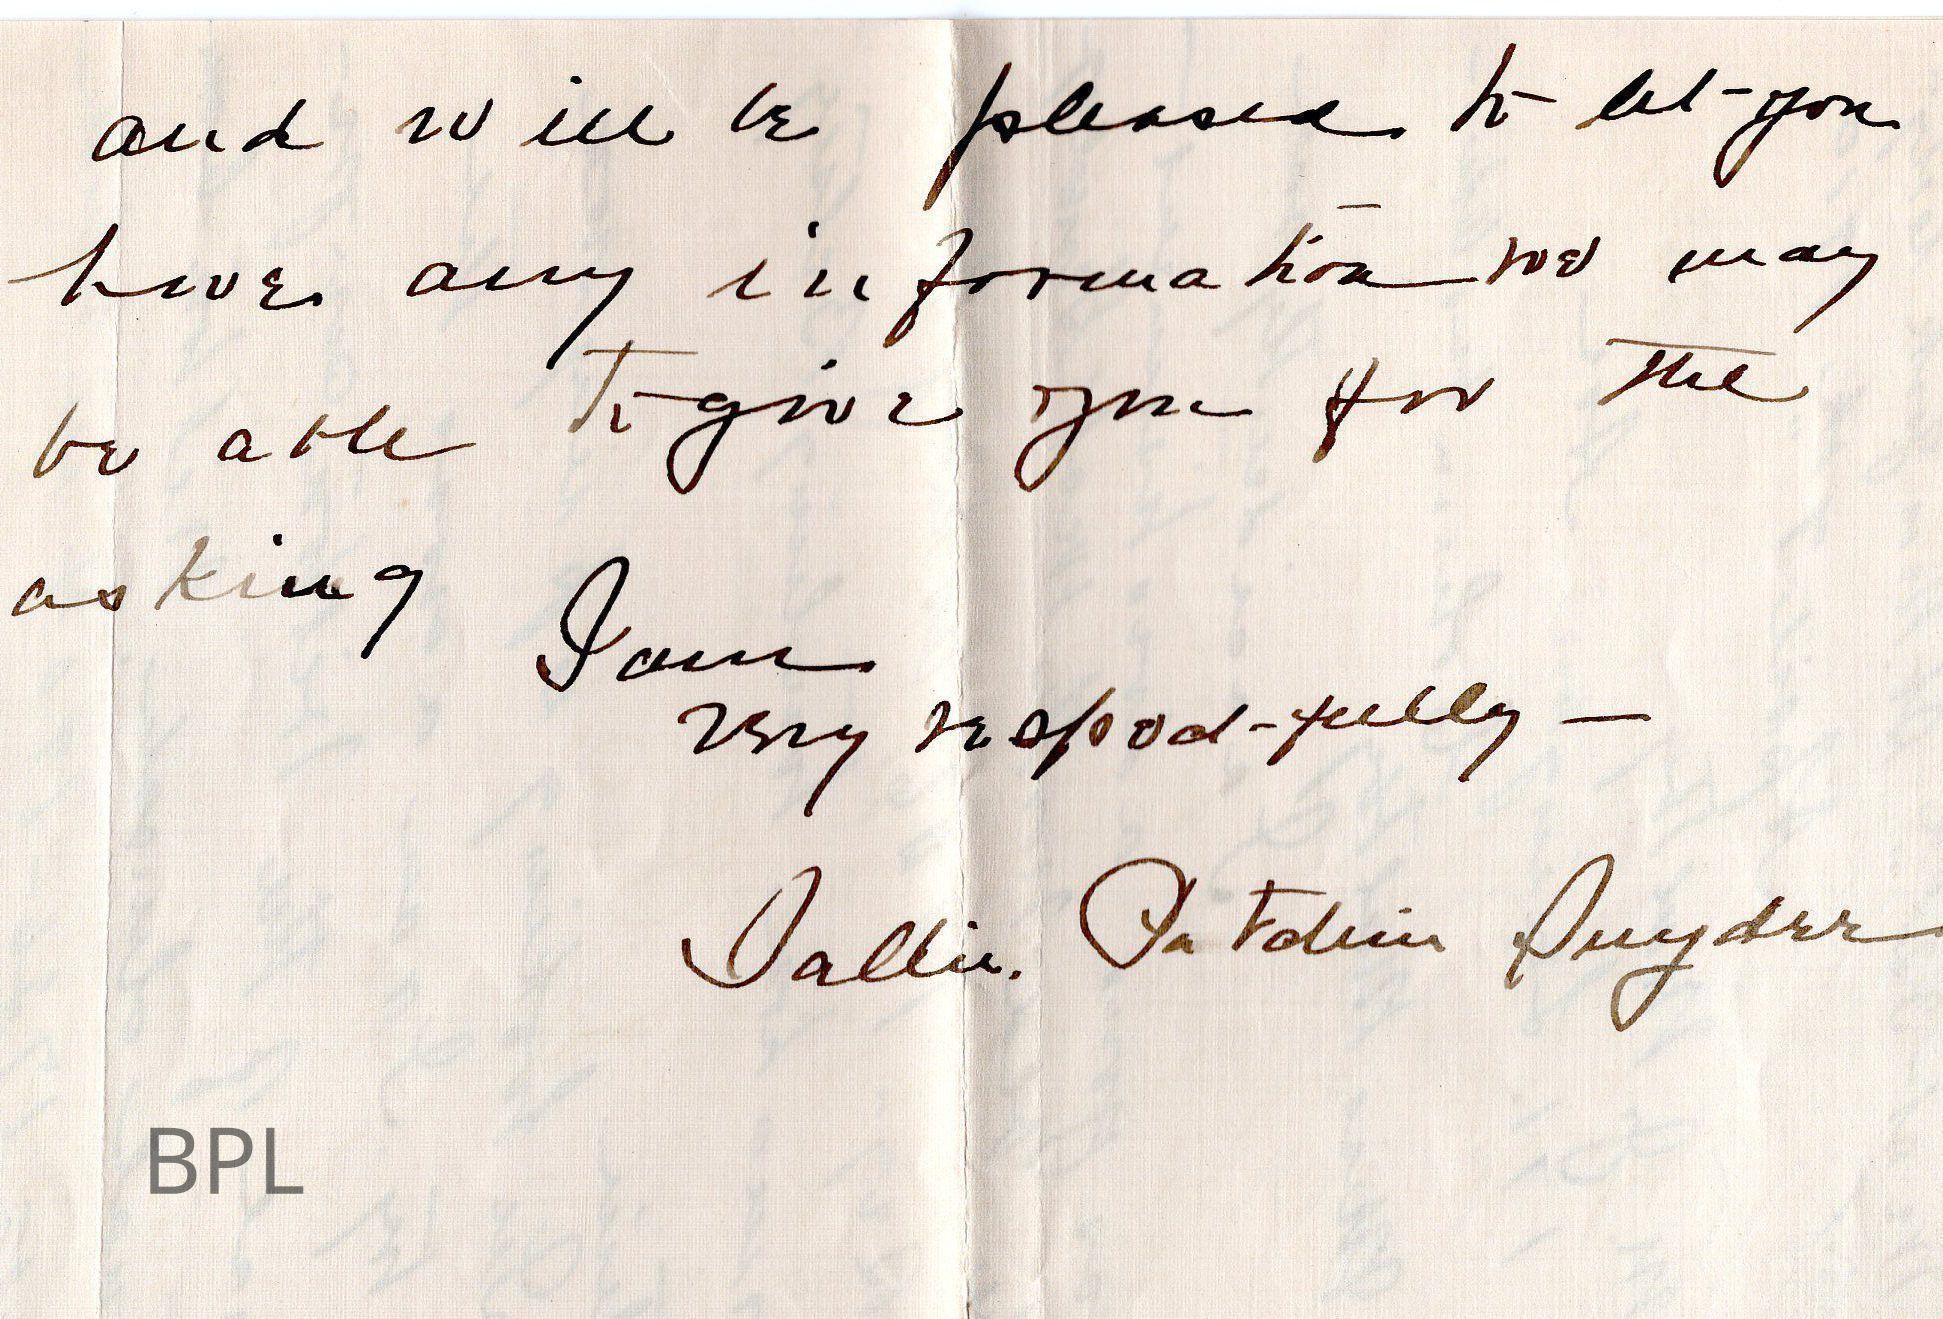 and will be pleased to let you
have any information we may
be able to give you for the
asking
I am
very respectfully —
Sallie Patchin Snyder
BPL